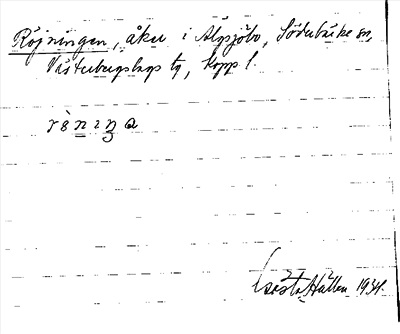 Röjningen, åker i Älgsjöbo, Söderbärke sn,
Västerbergslags tg, Kopp l.
Gösta Hallen 1934.